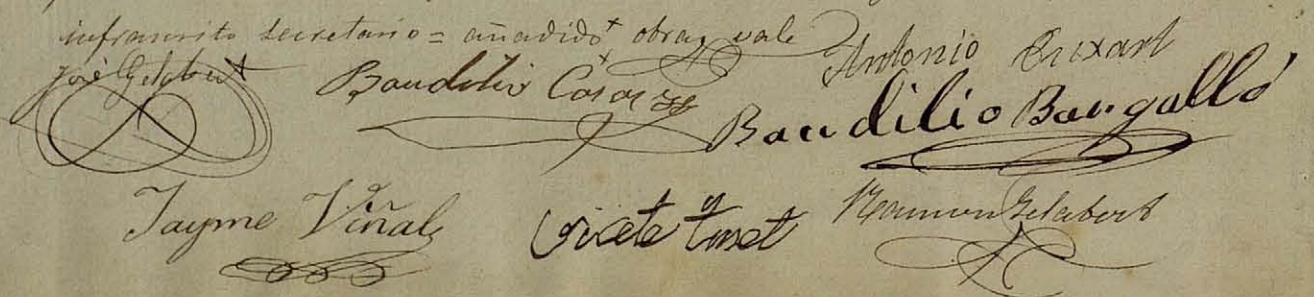 infrascrito secretario = añadido + obras vale
José Gelabert Baudilio Casas Antonio Brixart
Baudilio Bangalló
Jayme Viñals Vicete Ramon Gelabert